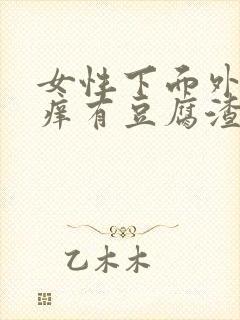 女性下面外
痒有豆腐渣
乙木木